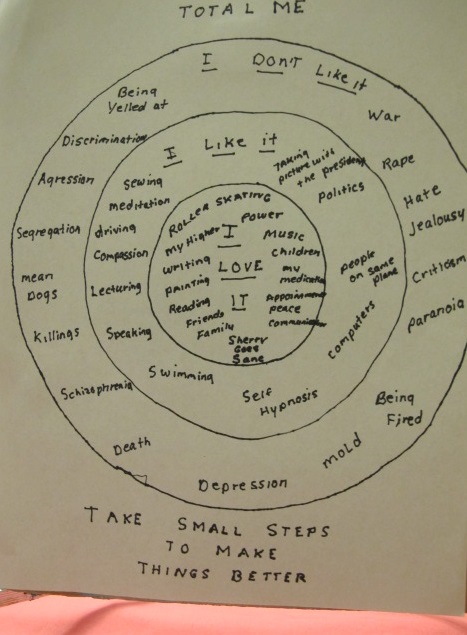 TOTAL ME
I DON'T Like it
Being
Yelled at
War
Discrimination
Rape
Agression
Hate
Jealousy
Segregation
Critism
mean
Dogs
paranoia
Killings
Schizophrenia
Being
Fired
Death
mold
Depression
I Like it
TAKING
picture with
the president
Sewing
Politics
meditation
driving
Compassion
people
on same
plane
Lecturing
computers
Speaking
Swimming
Self
Hypnosis
ROLLER SKATING
Power
My Higher
I
Music
writing
LOVE
Children
my
medication
painting
IT
Appointment
peace
Reading
Friends
Family
Sherry
Goes
Sane
TAKE SMALL STEPS
TO MAKE
THINGS BETTER